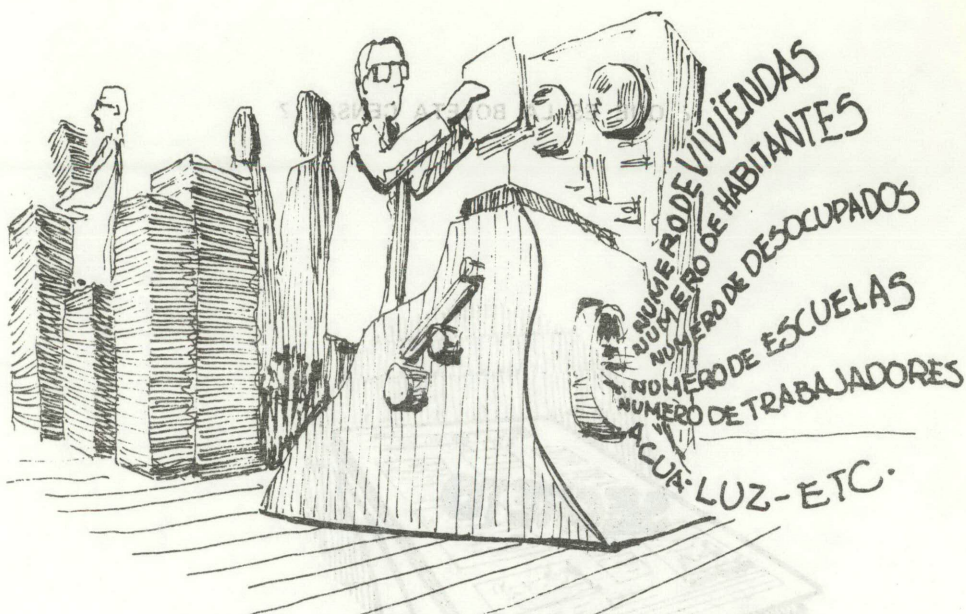 QUE ES LA BOLETA CENSAL?
NUMERO DE VIVIENDAS
NUMERO DE HABITANTES
NUMERO DE DESOCUPADOS
NUMERO DE ESCUELAS
NUMERO DE TRABAJADORES
AGUA-LUZ-ETC.